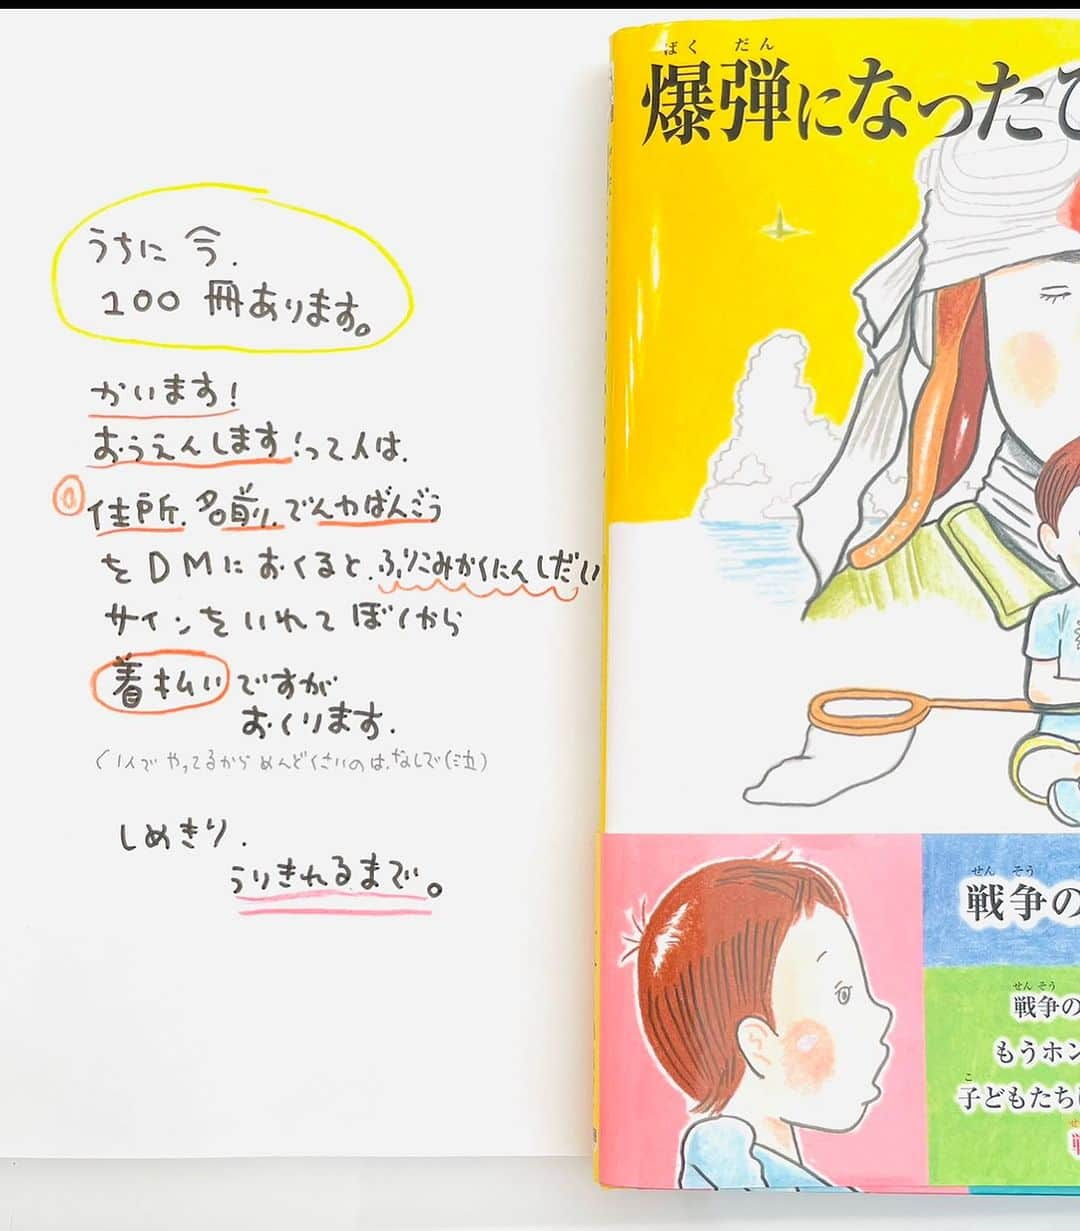 うちに 今.
100 冊あります。
かいます!
おうえんします!って人は.
◎住所. 名前. でんわばんごう
をDMに おくると. ふりこみかくにんしだい
サインを いれて ぼくから
着払い ですが
おくります.
(1人で やってるから めんどくさいのは. なしで(泣)
しめきり.
うりきれるまで。
ばく だん
爆弾になった
せん そう
戦争の
せん そう
戦争の
もうホン
こ
子どもたち